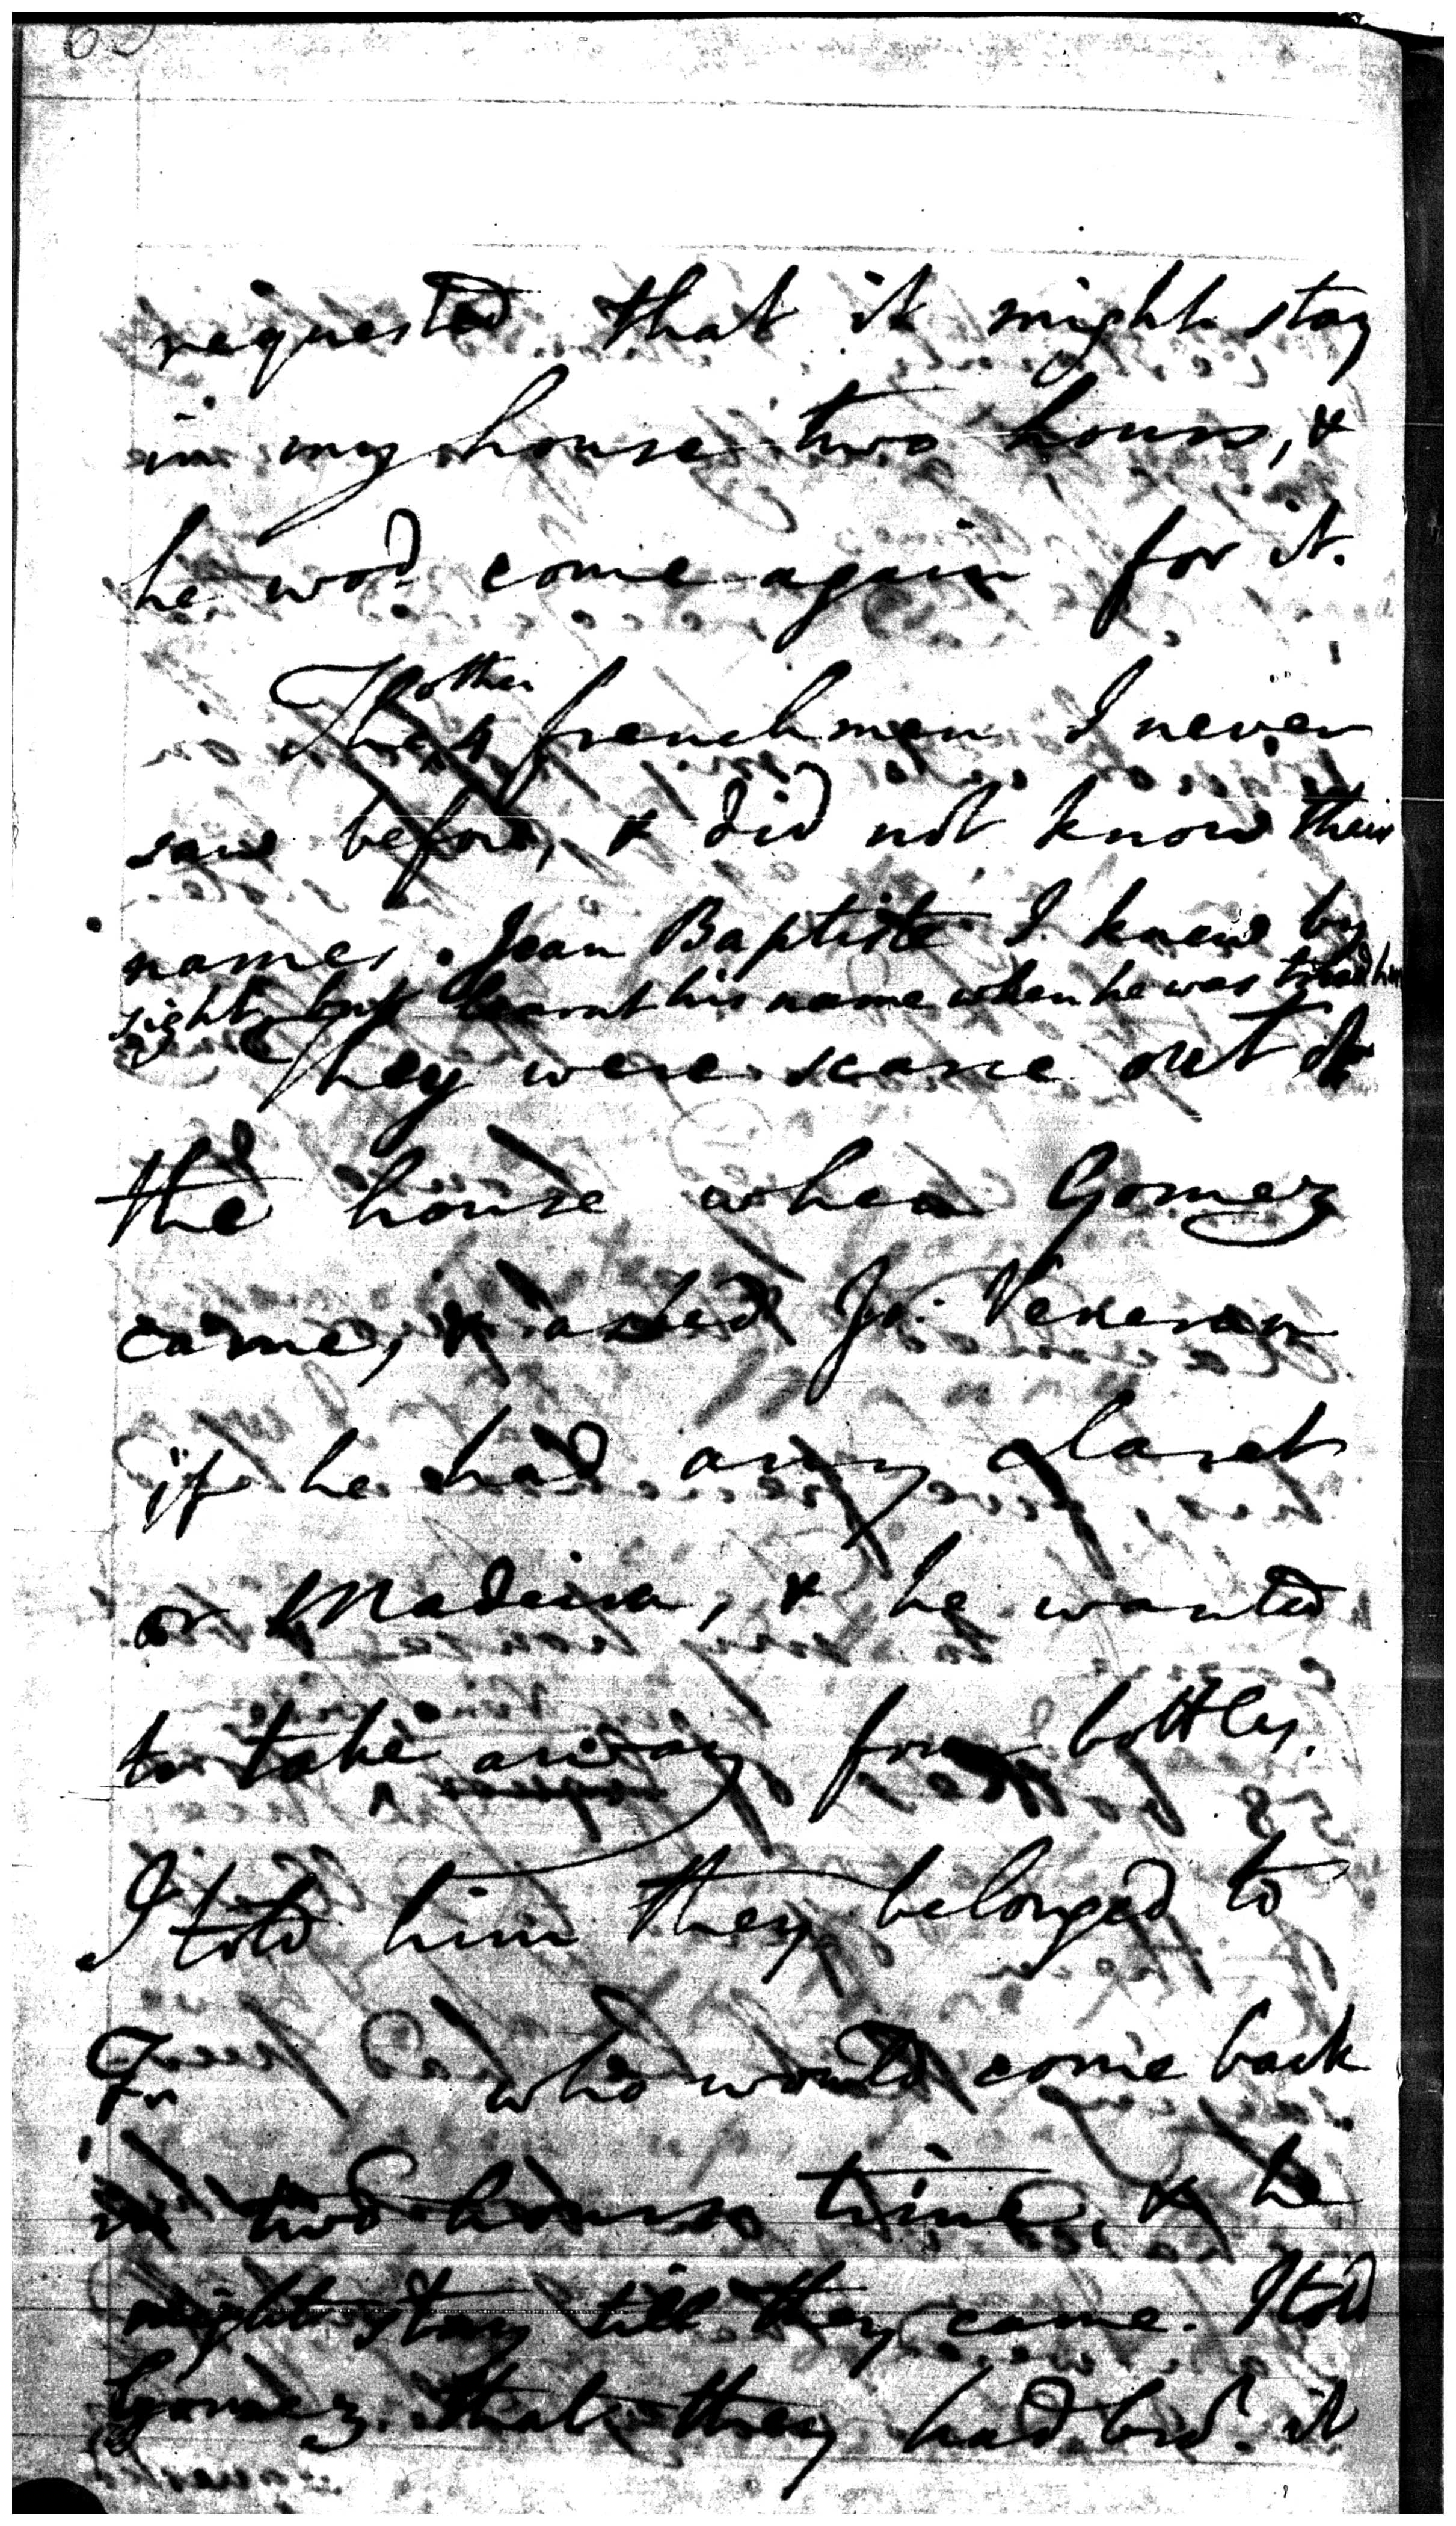 requested that it might stay
in my house two hours, &
he wod come again for it.
other
These frenchmen I never
saw before, & did not know their
names. Jean Baptiste I knew by
sight, but learnt his name when he was
They were scarce out of
the house when Gomez
came, & asked Jo.
if he had any claret
or Madeira, & he wanted
to take away four bottles.
I told him they belonged to
who would come back
in two hours time, & he
might stay till they came. I told
Gomez that they had bro.t it